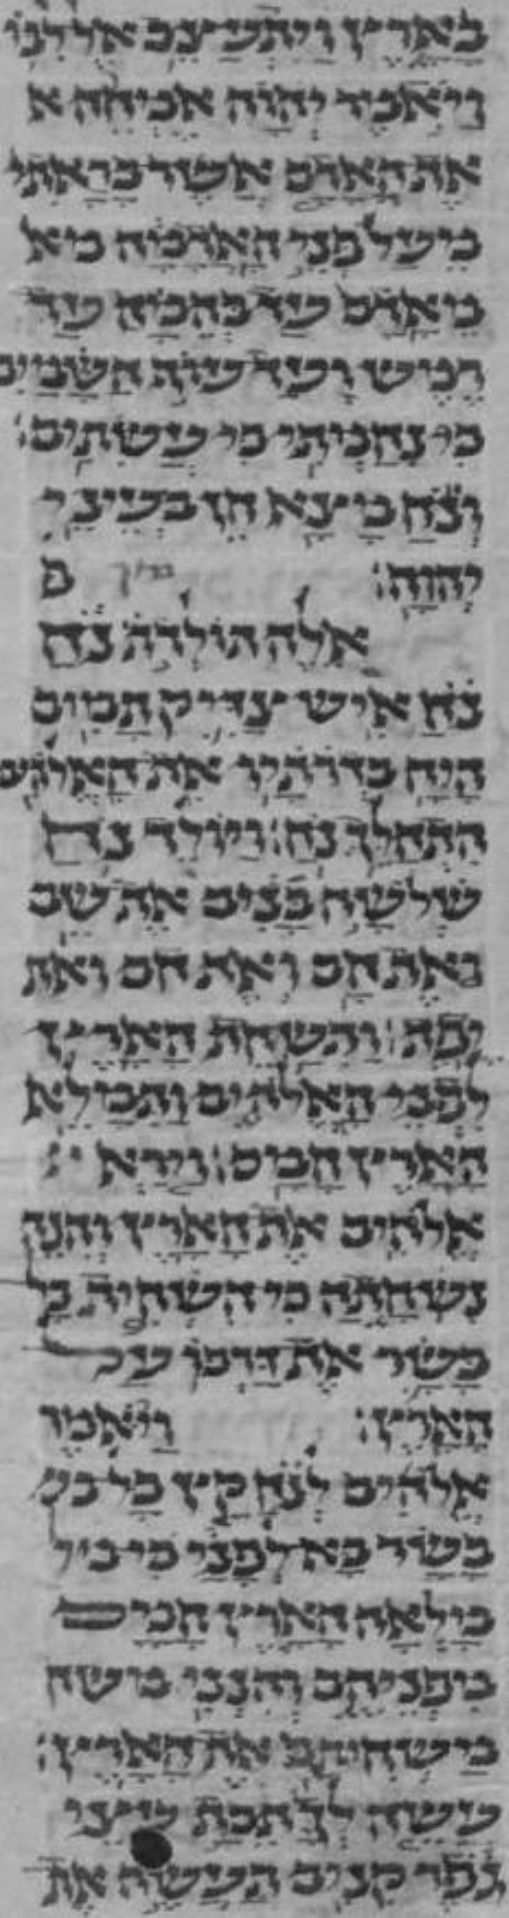 בארץ ויתעצב אל לבו
ויאמר יהוה אמחה א
את האדם אשר בראתי
מעל פני האדמה מא
מאדם עד בהמה עד
רמש ועד עוף השמים
כי נחמתי כי עשתים׃
ונח מצא חן בעיני
יהוה׃ פ
אלה תולדת נח
נח איש צדיק תמים
היה בדרתיו את האלהים
התהלך נח׃ ויולד נח
שלשה בנים את שם
ואת חם ואת חם ואת
יפת׃ ותשחת הארץ
לפני האלהים ותמלא
הארץ חמס׃ וירא
אלהים את הארץ והנה
נשחתה כי השחית כל
בשר את דרכו על
הארץ׃ ויאמר
אלהים לנח קץ כל בש
בשר בא לפני כי
מלאה הארץ חמס
מפניהם והנני משח
משחיתם את הארץ׃
עשה לך תבת עצי
גפר קנים תעשה את